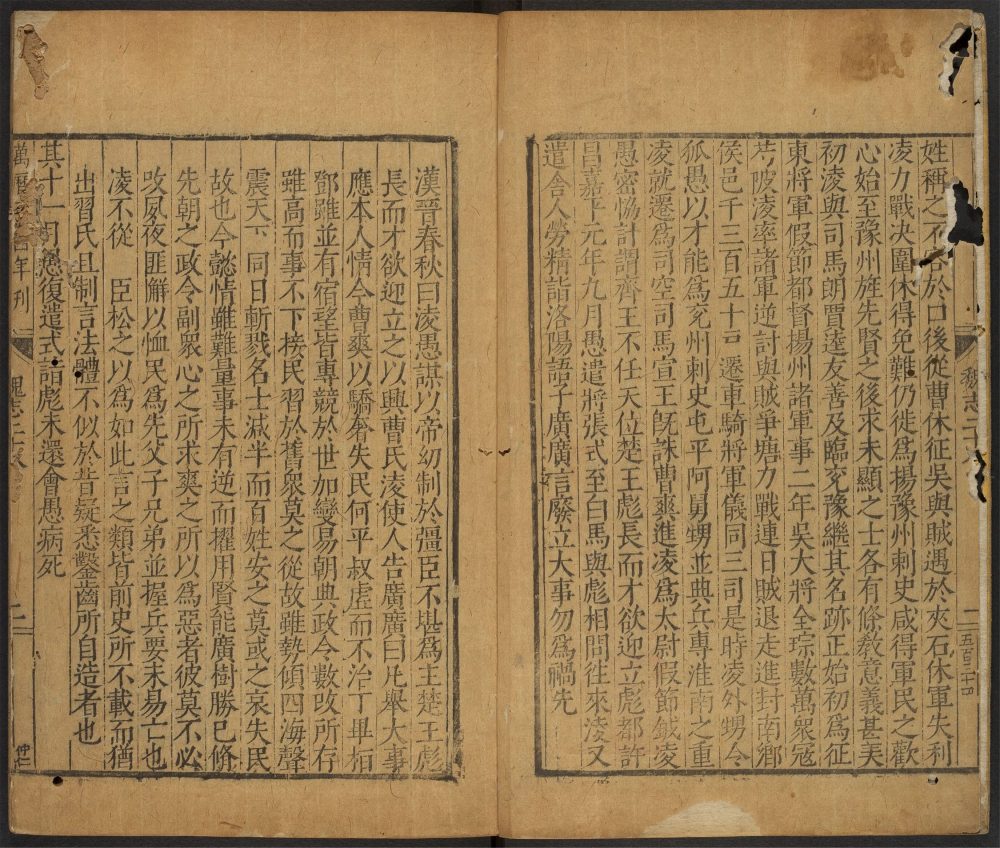 魏志二十八
五百二十四
姓稱之不容於口後從曹休征吳與賊遇於夾石休軍失利
凌力戰決圍休得免難仍徙爲揚豫州刺史咸得軍民之歡
心始至豫州旌先賢之後求未顯之士各有條敎意義甚美
初凌與司馬朗賈逵友善及臨兗豫繼其名跡正始初爲征
東將軍假節都督揚州諸軍事二年吳大將全琮數萬衆寇
芍陂凌率諸軍逆討與賊爭塘力戰連日賊退走進封南鄉
侯邑千三百五十戸遷車騎將軍儀同三司是時凌外甥令
狐愚以才能爲兗州刺史屯平阿舅甥並典兵專淮南之重
凌就遷爲司空司馬宣王旣誅曹爽進凌爲太尉假節鉞凌
愚密恊計謂齊王不任天位楚王彪長而才欲迎立彪都許
昌嘉平元年九月愚遣將張式至白馬與彪相問往來凌又
遣舍人勞精詣洛陽語子廣廣言廢立大事勿爲禍先
漢晉春秋曰凌愚謀以帝幼制於彊臣不堪爲主楚王彪
長而才欲迎立之以興曹氏凌使人告廣廣曰凡舉大事
應本人情今曹爽以驕奢失民何平叔虛而不治丁畢桓
鄧雖並有宿望皆專競於世加變易朝典政令數改所存
雖高而事不下接民習於舊衆莫之從故雖勢傾四海聲
震天下同日斬戮名士減半而百姓安之莫或之哀失民
故也今懿情雖難量事未有逆而擢用賢能廣樹勝已修
先朝之政令副衆心之所求爽之所以爲惡者彼莫不必
改夙夜匪懈以恤民爲先父子兄弟並握兵要未易亡也
凌不從　臣松之以爲如此言之類皆前史所不載而猶
出習氏且制言法體不似於昔疑悉鑿齒所自造者也
其十一月愚復遣式詣彪未還會愚病死
年刊
二